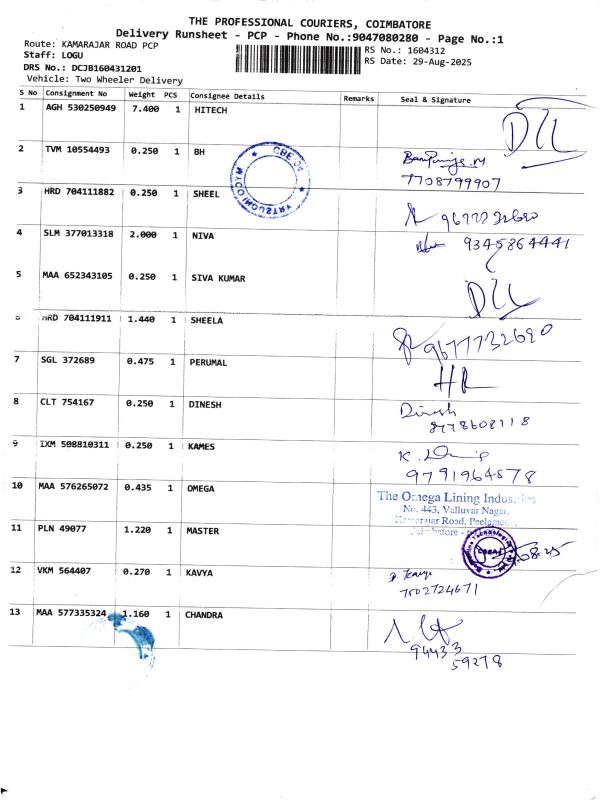 THE PROFESSIONAL COURIERS, COIMBATORE
Delivery Runsheet - PCP - Phone No.:9047080280 - Page No.:1
Route: KAMARAJAR ROAD PCP
RS No.: 1604312
Staff: LOGU
RS Date: 29-Aug-2025
DRS No.: DCJB160431201
Vehicle: Two Wheeler Delivery
S No Consignment No Weight PCS Consignee Details Remarks Seal & Signature
1 AGH 530250949 7.400 1 HITECH
2 TVM 10554493 0.250 1 BH
7708799907
3 HRD 704111882 0.250 1 SHEEL
9677732690
4 SLM 377013318 2.000 1 NIVA 9345864441
5 MAA 652343105 0.250 1 SIVA KUMAR
HRD 704111911 1.440 1 SHEELA
9677732690
7 SGL 372689 0.475 1 PERUMAL
8 CLT 754167 0.250 1 DINESH Dinesh
9 IXM 508810311 0.250 1 KAMES
9791964878
10 MAA 576265072 0.435 1 OMEGA
The Omega Lining Industries
No. 443, Valluvar Nagar,
Kamarajar Road,
Coimbatore -
11 PLN 49077 1.220 1 MASTER
12 VKM 564407 0.270 1 KAVYA
7502724671
13 MAA 577335324 1.160 1 CHANDRA
94433
59278